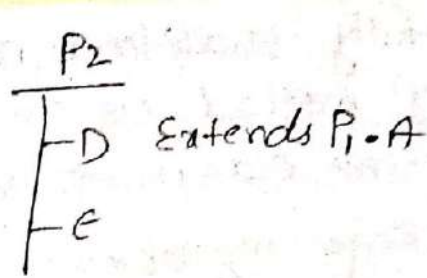 P2
D Extends P1.A
E